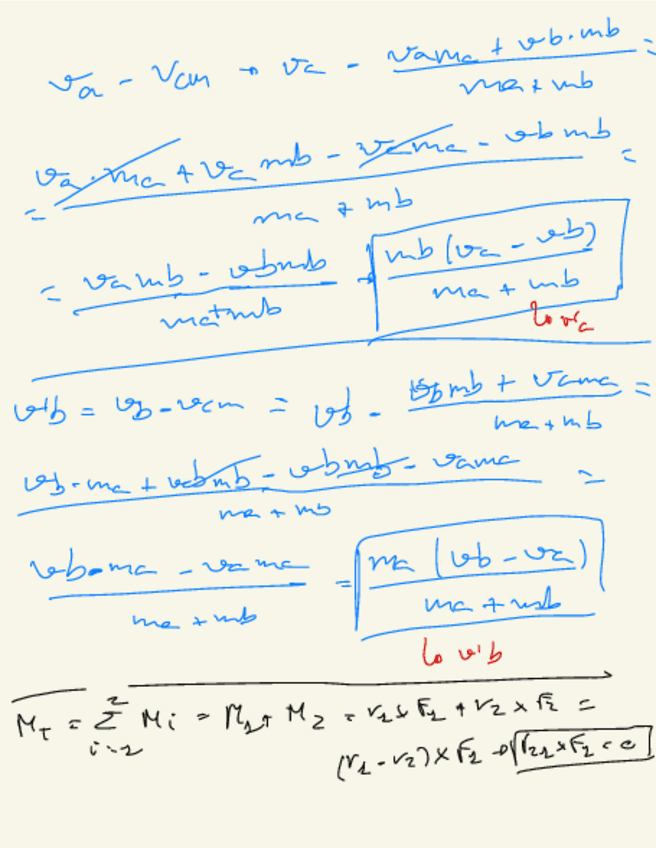 va - vcm → va - (va ma + vb · mb) / (ma + mb) =
= (va · ma + va mb - va ma - vb mb) / (ma + mb) =
= (va mb - vb mb) / (ma + mb) → mb (va - vb) / (ma + mb)
↳ v'a
v'b = vb - vcm = vb - (vb mb + va ma) / (ma + mb) =
(vb · ma + vb mb - vb mb - va ma) / (ma + mb) =
(vb · ma - va ma) / (ma + mb) = ma (vb - va) / (ma + mb)
↳ v'b
M_T = Σ_{i=1}^{2} Mi = M1 + M2 = r1 x F1 + r2 x F2 =
(r1 - r2) x F1 → r21 x F1 = 0